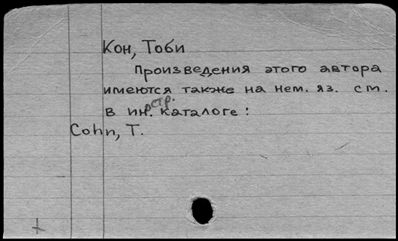 Кон, Тоби
Произведения этого автора
имеются также на нем. яз. см.
в ин.остр. каталоге:
Cohn, T.